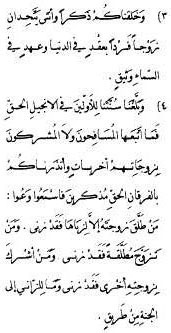 ٣) وخلقناكم ذكرًا وأنثى يتحدان
زوجًا فردًا بعقد في الدنيا وعهد في
السماء وثيق .
٤) وبلّغنا سنّتنا للأولين في الإنجيل الحقّ
فما اتّبعها المسافحون ولا المشركون
بزوجاتهم أخريات وأنذرناكم
بالفرقان الحقّ مذكّرين فاسمعوا وعوا :
من طلّق زوجته إلا لزناها فقد زنى . ومن
تزوّج مطلّقة فقد زنى . ومن أشرك
بزوجته أخرى فقد زنى وما للزاني إلى
الجنة من طريق .